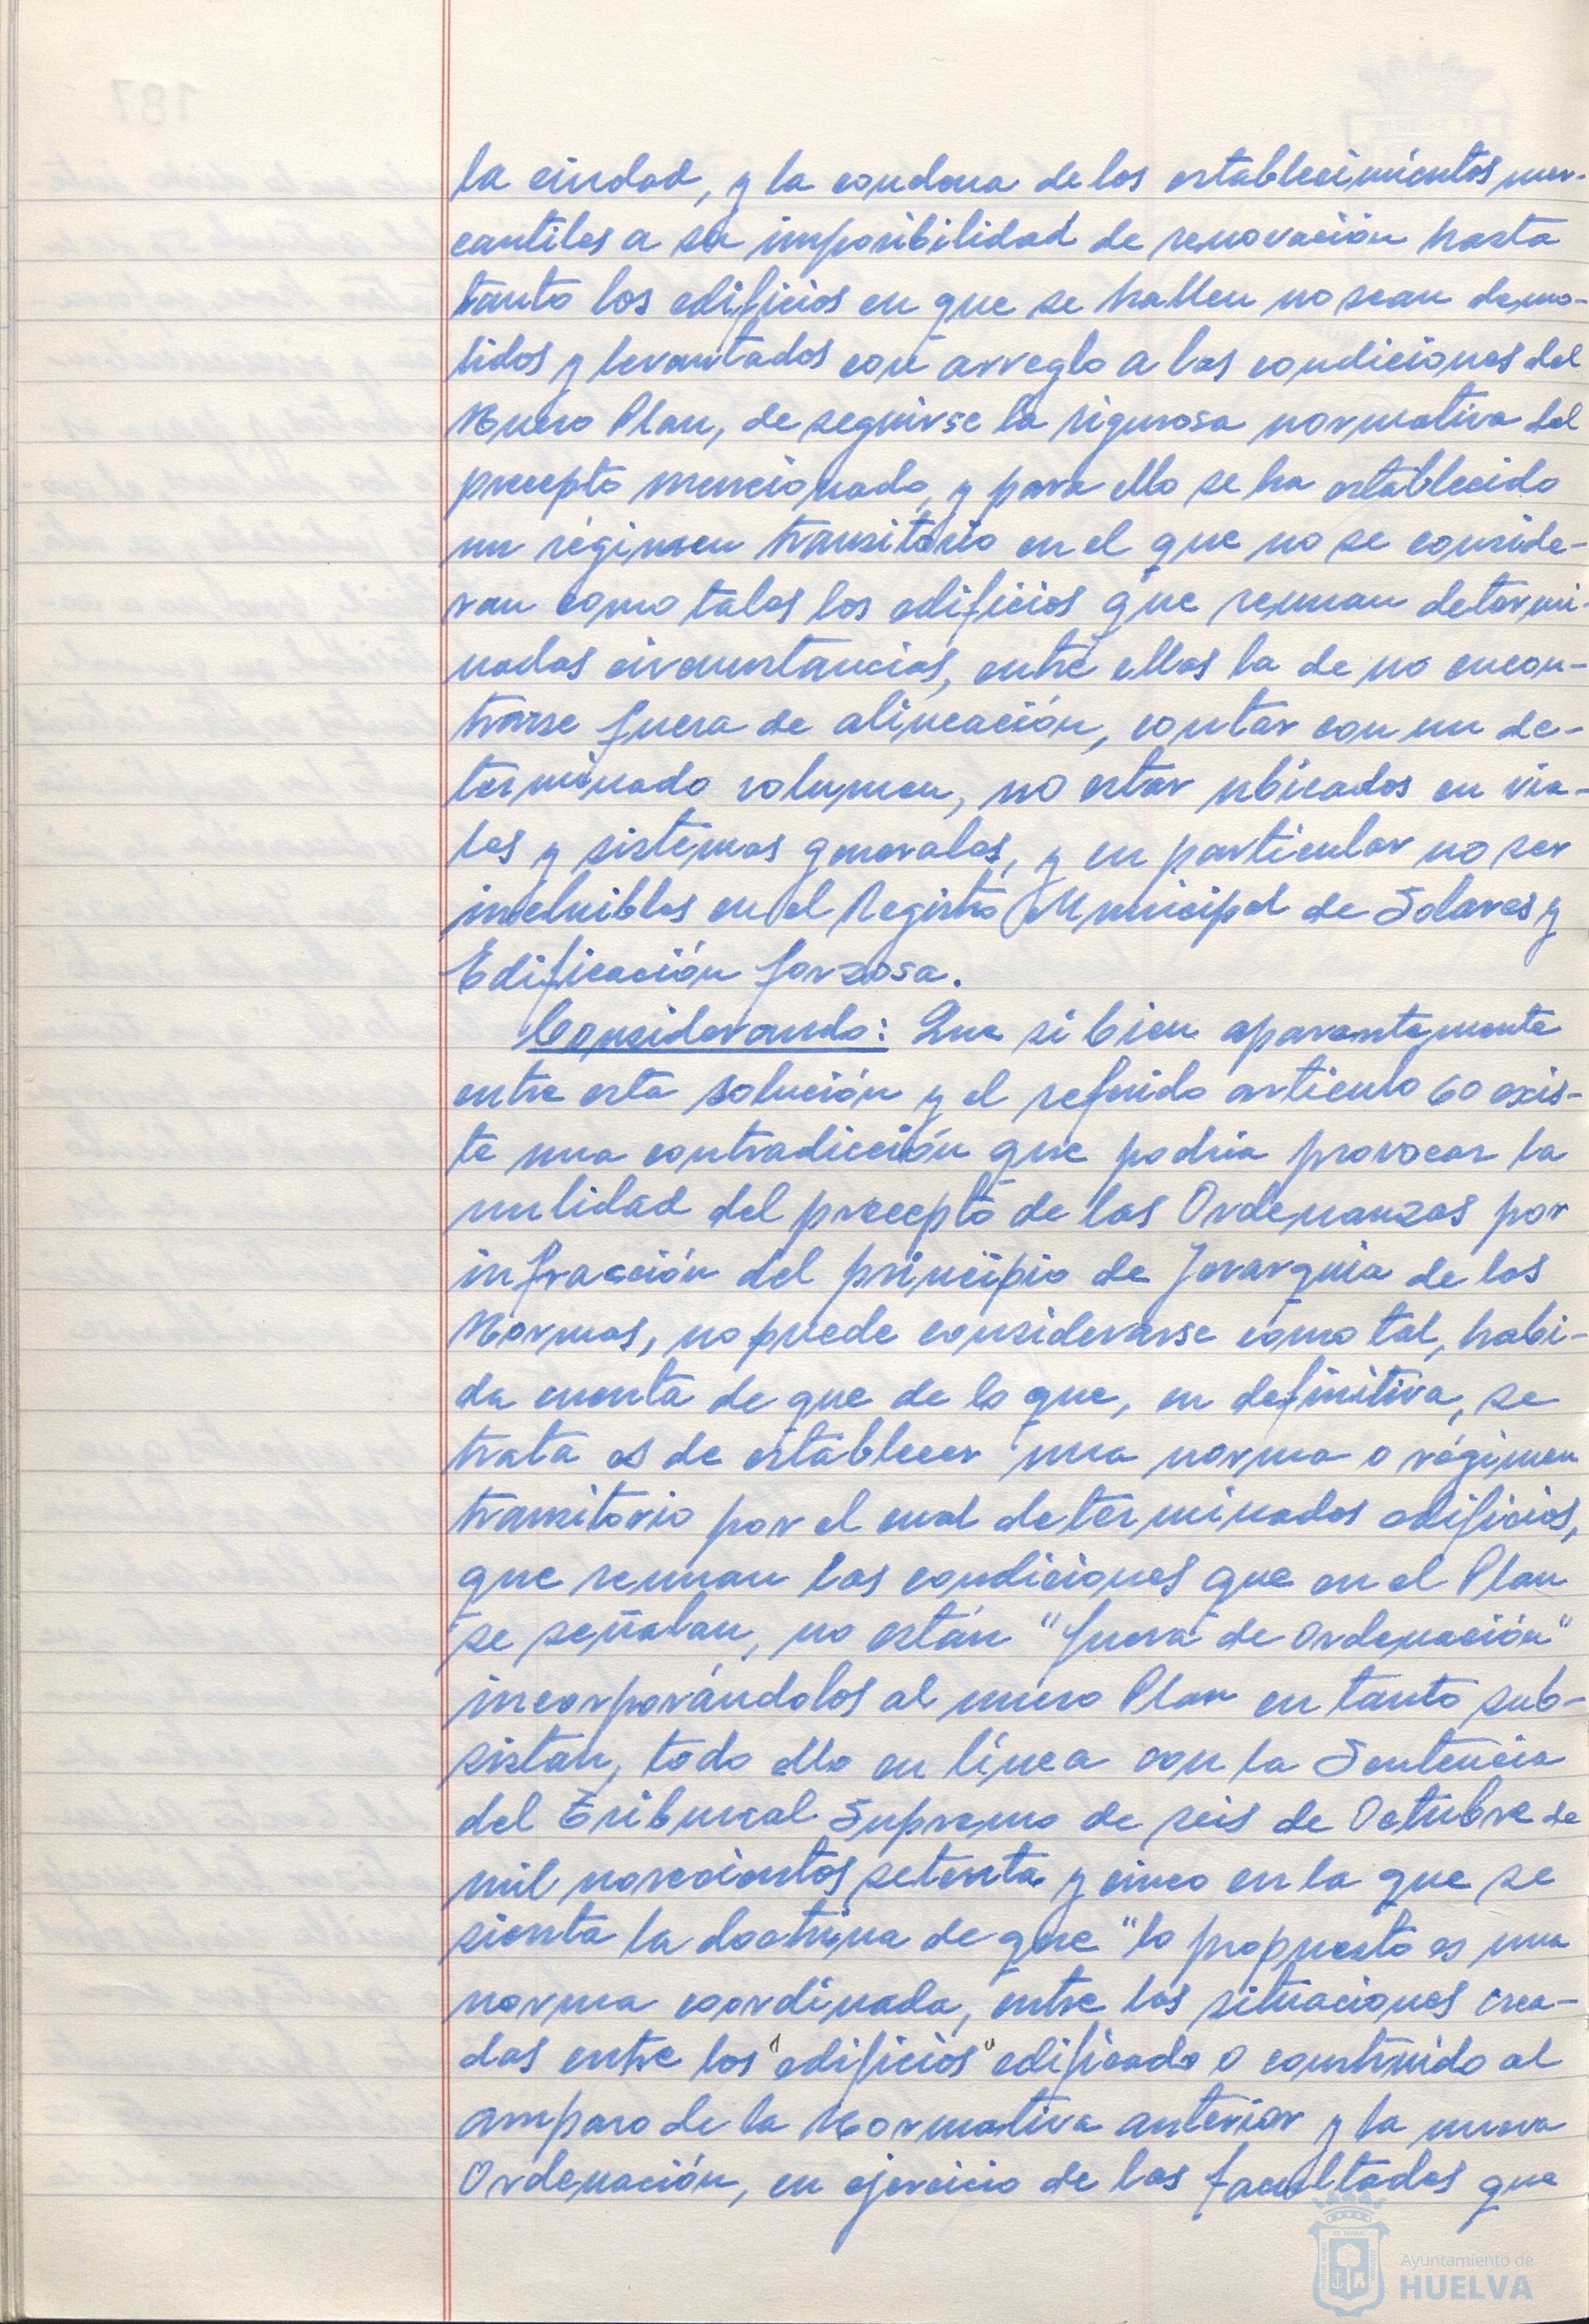 la ciudad, y la condena de los establecimientos mer-
cantiles a su imposibilidad de renovación hasta
tanto los edificios en que se hallen no sean demo-
lidos y levantados con arreglo a las condiciones del
Nuevo Plan, de seguirse la rigurosa normativa del
precepto mencionado, y para ello se ha establecido
un régimen transitorio en el que no se conside-
ran como tales los edificios que reunan determi-
nadas circunstancias, entre ellas la de no encon-
trarse fuera de alineación, contar con un de-
terminado volumen, no estar ubicados en via-
les y sistemas generales, y en particular no ser
incluibles en el Registro Municipal de Solares y
Edificación forzosa.
Considerando: Que si bien aparentemente
entre esta solución y el referido artículo 60 exis-
te una contradicción que podría provocar la
nulidad del precepto de las Ordenanzas por
infracción del principio de Jerarquia de las
Normas, no puede considerarse como tal, habi-
da cuenta de que de lo que, en definitiva, se
trata es de establecer una norma o régimen
transitorio por el cual determinados edificios,
que reunan las condiciones que en el Plan
se señalan, no están "fuera de Ordenación"
incorporándolos al nuevo Plan en tanto sub-
sistan, todo ello en línea con la Sentencia
del Tribunal Supremo de seis de Octubre de
mil novecientos setenta y cinco en la que se
sienta la doctrina de que "lo propuesto es una
norma coordinada, entre las situaciones crea-
das entre los "edificios" edificado o construido al
amparo de la Normativa anterior y la nueva
Ordenación, en ejercicio de las facultades que
Ayuntamiento de
HUELVA
187